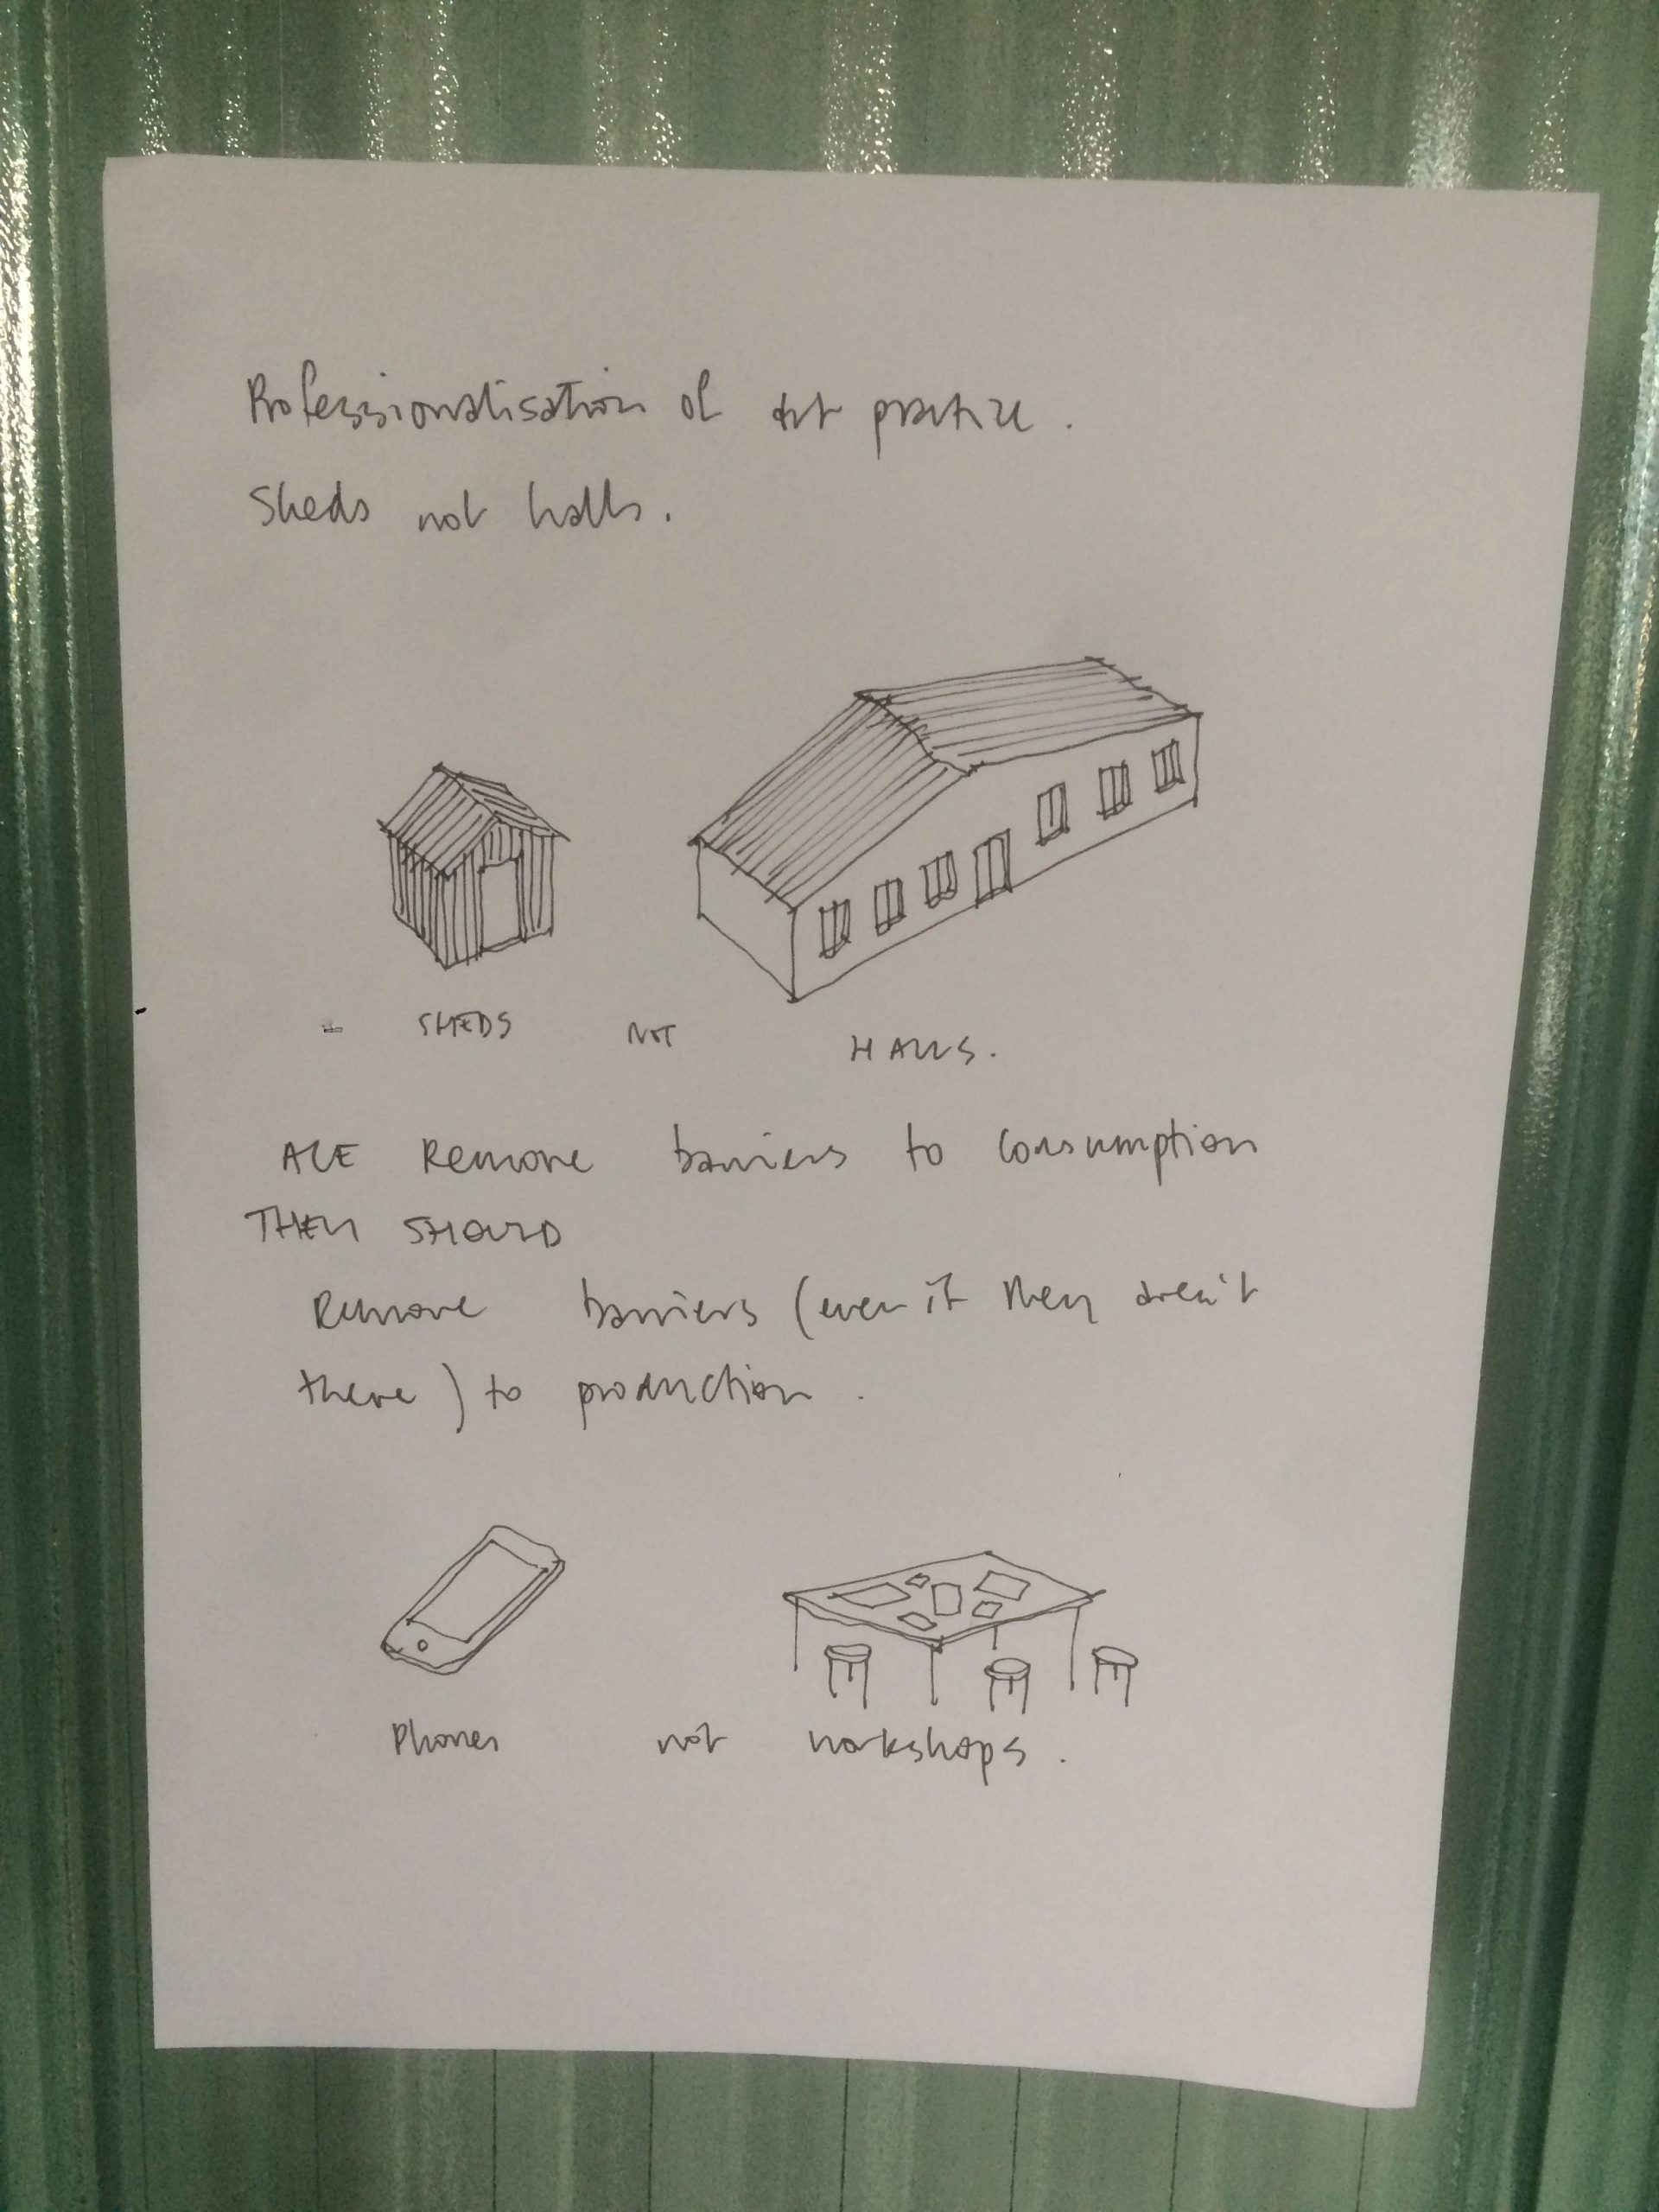 Professionalisation of art practice.
Sheds not halls.
SHEDS NOT HALLS.
ACE Remove barriers to consumption
THEY SHOULD
Remove barriers (even if they aren't
there) to production.
Phones not workshops.